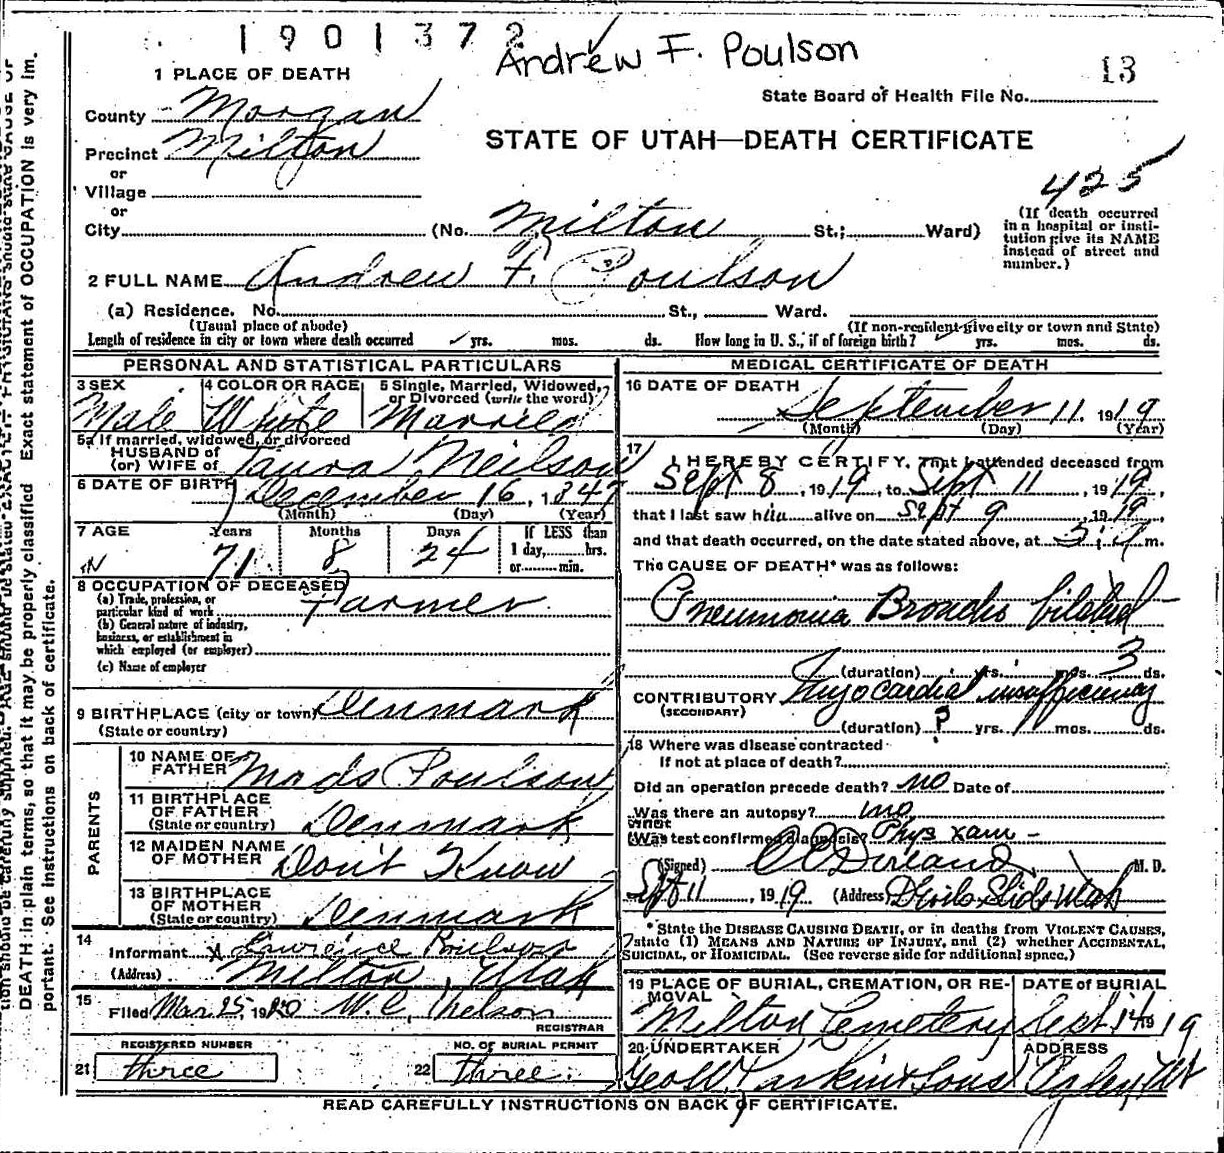 1901372
Andrew F. Poulson
13
1 PLACE OF DEATH
State Board of Health File No.
County Morgan
STATE OF UTAH—DEATH CERTIFICATE
Precinct Milton
or
Village
425
or
City (No. Milton St.; Ward)
(If death occurred in a hospital or institution give its NAME instead of street and number.)
2 FULL NAME Andrew F. Poulson
(a) Residence. No. St., Ward.
(Usual place of abode) (If non-resident give city or town and State)
Length of residence in city or town where death occurred yrs. mos. ds. How long in U. S., if of foreign birth? yrs. mos. ds.
PERSONAL AND STATISTICAL PARTICULARS
3 SEX 4 COLOR OR RACE 5 Single, Married, Widowed, or Divorced (write the word)
Male White Married
5a If married, widowed, or divorced
HUSBAND of
(or) WIFE of Laura Neilson
6 DATE OF BIRTH December 16, 1847
(Month) (Day) (Year)
7 AGE Years Months Days If LESS than
71 8 24 1 day, hrs.
or min.
8 OCCUPATION OF DECEASED
(a) Trade, profession, or
particular kind of work Farmer
(b) General nature of industry,
business, or establishment in
which employed (or employer)
(c) Name of employer
9 BIRTHPLACE (city or town) Denmark
(State or country)
PARENTS
10 NAME OF
FATHER Mads Poulson
11 BIRTHPLACE
OF FATHER
(State or country) Denmark
12 MAIDEN NAME
OF MOTHER Don't Know
13 BIRTHPLACE
OF MOTHER
(State or country) Denmark
14
Informant Lawrence Poulson
(Address) Milton, Utah
15
Filed Mar 25, 1920 W. C. Nelson
REGISTRAR
REGISTERED NUMBER NO. OF BURIAL PERMIT
21 three 22 three
MEDICAL CERTIFICATE OF DEATH
16 DATE OF DEATH
September 11, 1919
(Month) (Day) (Year)
17 I HEREBY CERTIFY, That I attended deceased from
Sept 8, 1919, to Sept 11, 1919,
that I last saw him alive on Sept 9, 1919,
and that death occurred, on the date stated above, at m.
The CAUSE OF DEATH* was as follows:
Pneumonia Broncho bilateral
(duration) yrs. mos. 3 ds.
CONTRIBUTORY Myocardial insufficiency
(SECONDARY)
(duration) ? yrs. mos. ds.
18 Where was disease contracted
If not at place of death?
Did an operation precede death? no Date of
Was there an autopsy? no
What
(Was test confirmed diagnosis? Phys xam -
(Signed) M. D.
Sept 11, 1919 (Address) Devils Slide Utah
*State the DISEASE CAUSING DEATH, or in deaths from VIOLENT CAUSES,
state (1) MEANS AND NATURE OF INJURY, and (2) whether ACCIDENTAL,
SUICIDAL, or HOMICIDAL. (See reverse side for additional space.)
19 PLACE OF BURIAL, CREMATION, OR REMOVAL DATE of BURIAL
Milton Cemetery Sept 14 1919
20 UNDERTAKER ADDRESS
Geo W. Larkin & Sons Ogden, Ut
READ CAREFULLY INSTRUCTIONS ON BACK OF CERTIFICATE.
DEATH in plain terms, so that it may be properly classified. Exact statement of OCCUPATION is very im-
portant. See instructions on back of certificate.